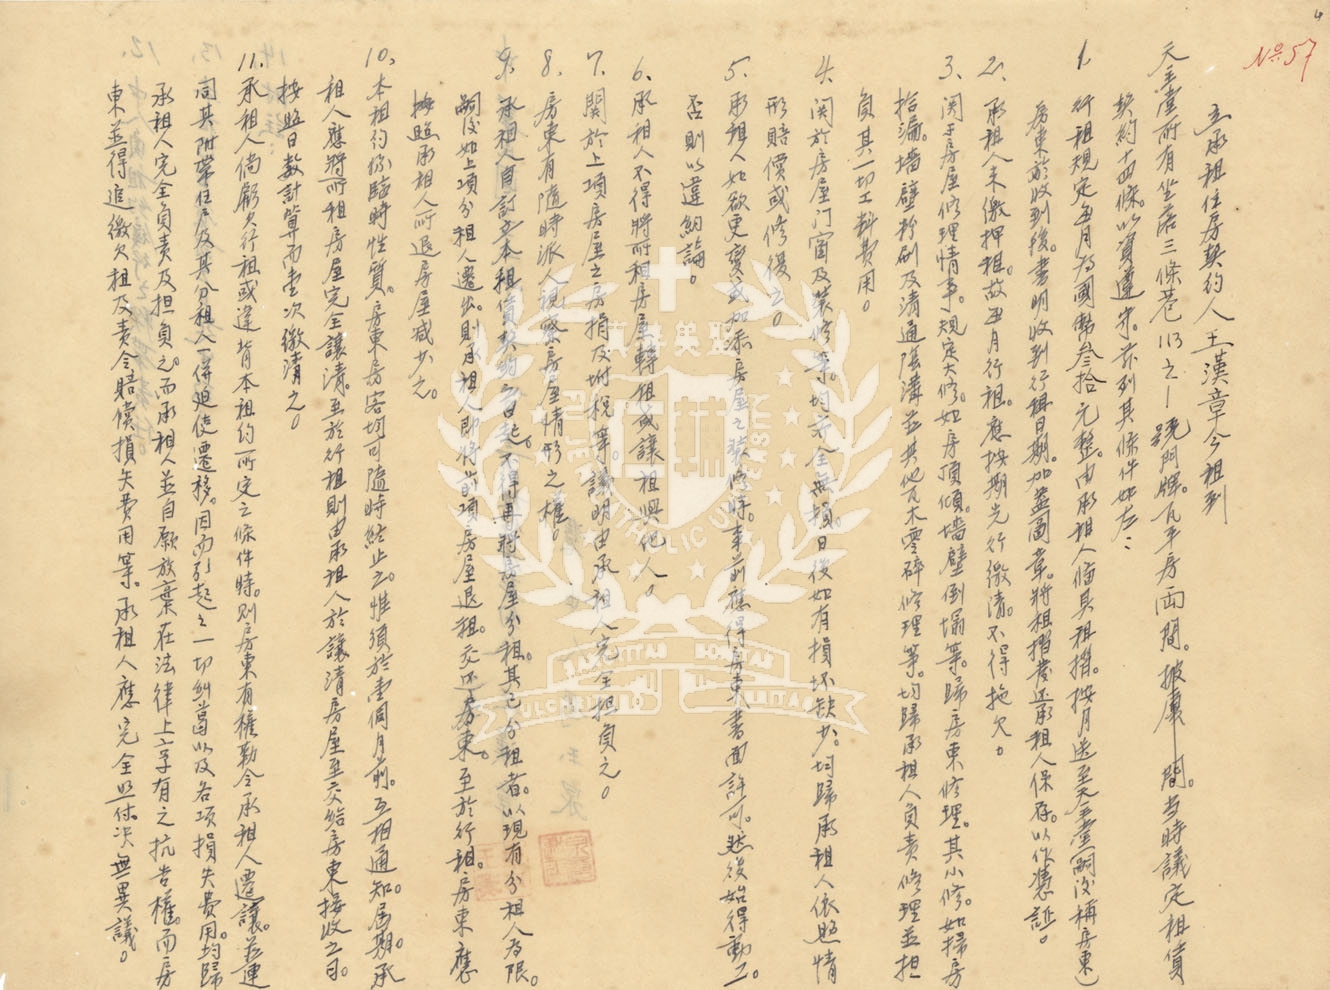 4
No.57
立承租住房契約人王漢章今租到
天主堂所有坐落三條巷113之一號門牌。瓦平房両間。披廈一間。当時議定租賃
契約十四條。以資遵守。茲列其條件如左：
1. 行租規定每月為國幣叁拾元整。由承租人備具租摺。按月送至天主堂(嗣後稱房東)
房東於收到後。書明收到行租日期。加蓋圖章。將租摺發还承租人保存。以作憑証。
2. 承租人未繳押租。故每月行租。應按期先行繳清。不得拖欠。
3. 関于房屋修理情事。規定大修。如房頂傾。墻壁倒塌等。歸房東修理。其小修。如掃房
拾漏。墻壁粉刷及清通陰溝並其他瓦木零碎修理等。均歸承租人負責修理並担
負其一切工料費用。
4. 関於房屋门窗及裝修等。均完全無損。日後如有損坏缺少。均歸承租人依照情
形賠償或修復之。
5. 承租人如欲更變或加添房屋之裝修時。事前應得房東書面許可。然後始得動工。
否則以違約論。
6. 承租人不得將所租房屋轉租或讓租與他人。
7. 関於上項房屋之房捐及附稅等。議明由承租人完全担負之。
8. 房東有隨時派人視察房屋情形之權。
9. 承租人自訂立本租賃契約之日起。不得再將房屋分租。其已分租者。以現有分租人為限。
嗣後如上項分租人遷出。則承租人即將前項房屋退租。交还房東。至於行租。房東應
按照承租人所退房屋减少之。
10. 本租約係臨時性質。房東房客均可隨時終止之。惟須於壹個月前。互相通知。屆期。承
租人應將所租房屋完全讓清。至於行租則由承租人於讓清房屋至交給房東接收之日。
按照日數計算而壹次繳清之。
11. 承租人倘虧欠行租或違背本租約所定之條件時。則房東有權勒令承租人遷讓。並連
同其附帶住户及其分租人一併迫使遷移。因而引起之一切糾葛以及各項損失費用。均歸
承租人完全負責及担負之。而承租人並自願放棄在法律上享有之抗告權。而房
東並得追繳欠租及責令賠償損失費用等。承租人應完全照付決無異議。